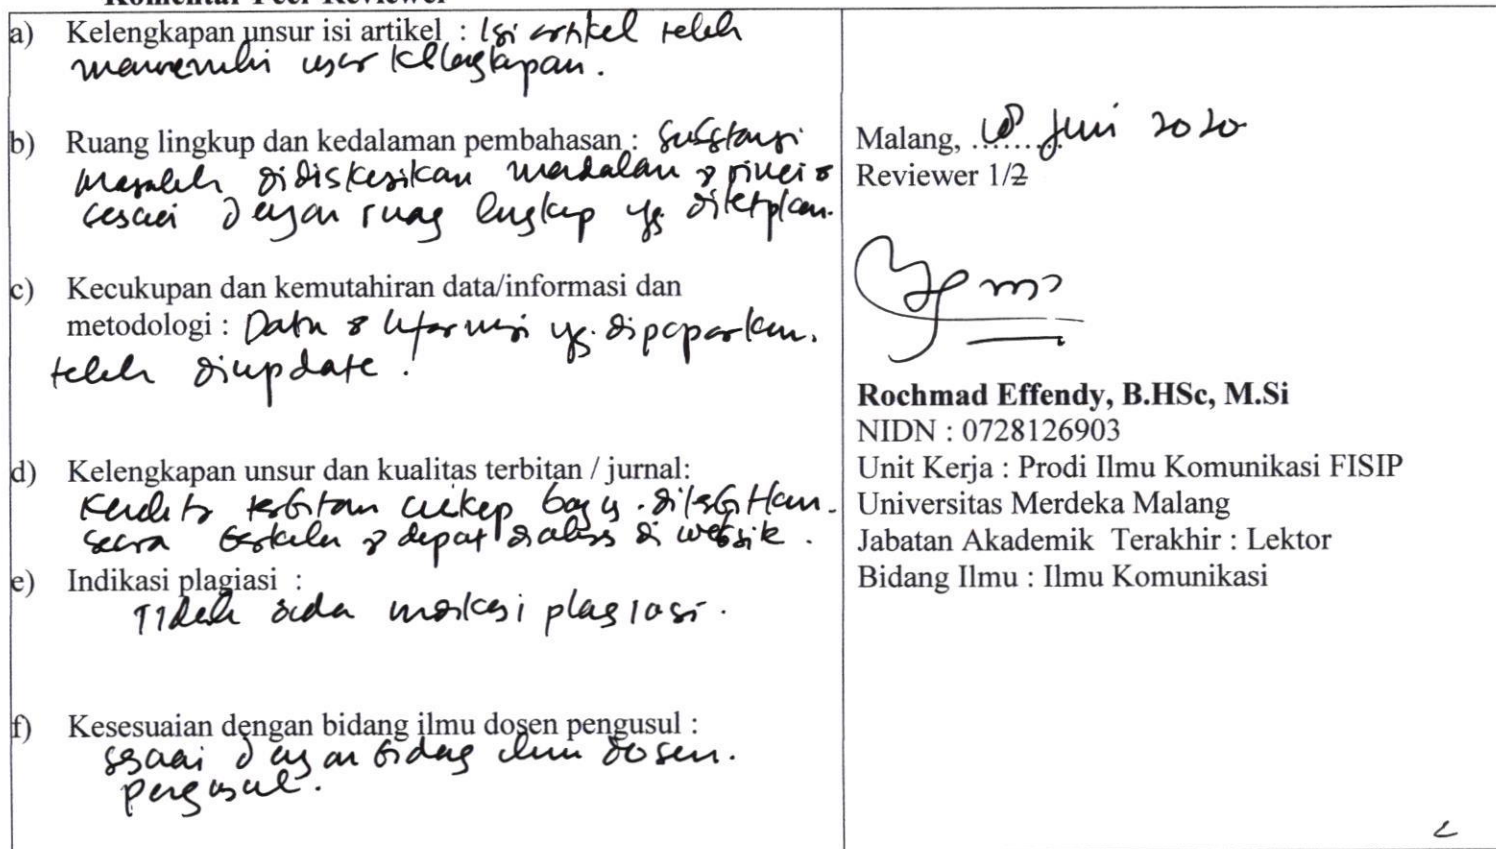 Komentar Peer Reviewer
a) Kelengkapan unsur isi artikel : Isi artikel telah
memenuhi unsur kelengkapan.
b) Ruang lingkup dan kedalaman pembahasan : Substansi
masalah didiskusikan mendalam & rinci &
sesuai dengan ruang lingkup yg ditetapkan.
c) Kecukupan dan kemutahiran data/informasi dan
metodologi : Data & Informasi yg. dipaparkan.
telah diupdate.
d) Kelengkapan unsur dan kualitas terbitan / jurnal:
terbitan cukup bagus. diterbitkan
secara berkala & dapat diakses di website.
e) Indikasi plagiasi :
Tidak ada indikasi plagiasi.
f) Kesesuaian dengan bidang ilmu dosen pengusul :
sesuai dengan bidang ilmu dosen.
pengusul.
Malang, Juni 2020
Reviewer 1/2
Rochmad Effendy, B.HSc, M.Si
NIDN : 0728126903
Unit Kerja : Prodi Ilmu Komunikasi FISIP
Universitas Merdeka Malang
Jabatan Akademik Terakhir : Lektor
Bidang Ilmu : Ilmu Komunikasi